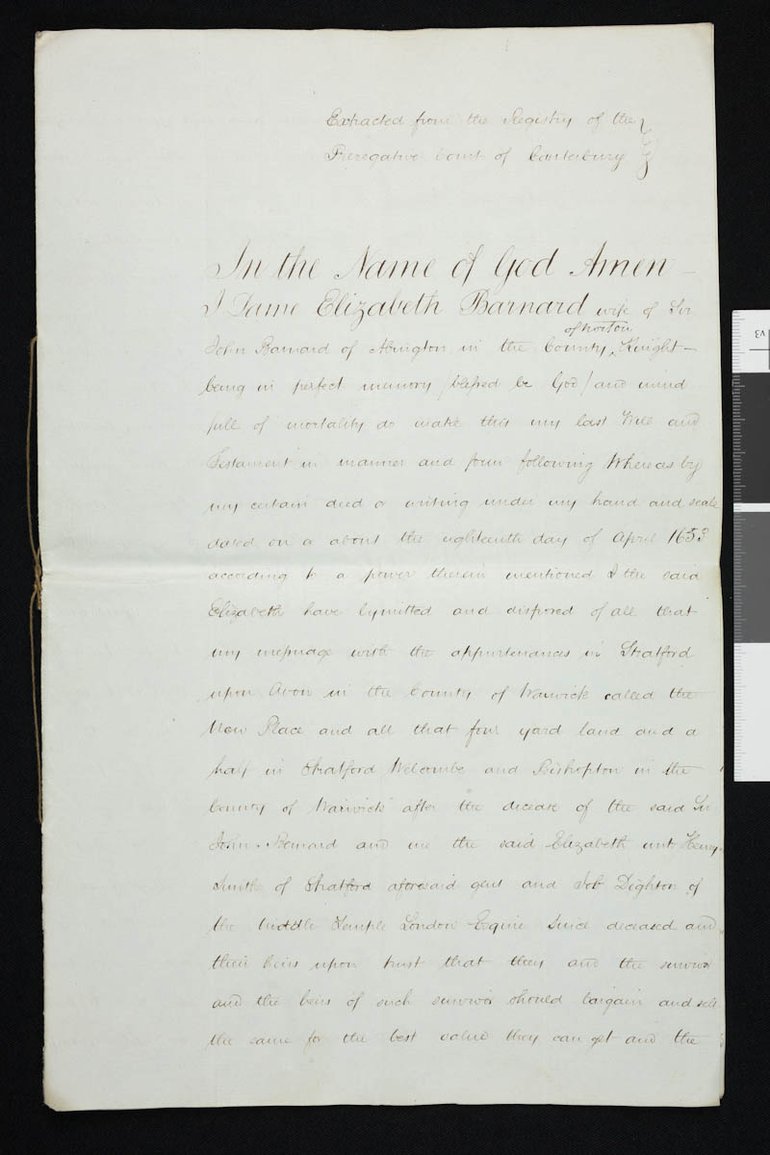 Extracted from the Registry of the
Prerogative Court of Canterbury
In the Name of God Amen
I Dame Elizabeth Barnard wife of Sir
of norton
John Barnard of Abington in the County, Knight
being in perfect memory /blessed be God/ and mind
full of mortality do make this my last Will and
Testament in manner and form following Whereas by
my certain deed or writing under my hand and seale
dated on or about the eighteenth day of April 1653
according to a power therein mentioned I the said
Elizabeth have lymitted and disposed of all that
my messuage with the appurtenances in Stratford
upon Avon in the County of Warwick called the
New Place and all that four yard land and a
half in Stratford Welcombe and Bishopton in the
County of Warwick after the decease of the said Sir
John Barnard and me the said Elizabeth unto Henry
Smith of Stratford aforesaid gent and Job Dighton of
the Middle Temple London Esquire since deceased and
their heirs upon trust that they and the survivor
and the heirs of such survivor should bargain and sell
the same for the best value they can get and the